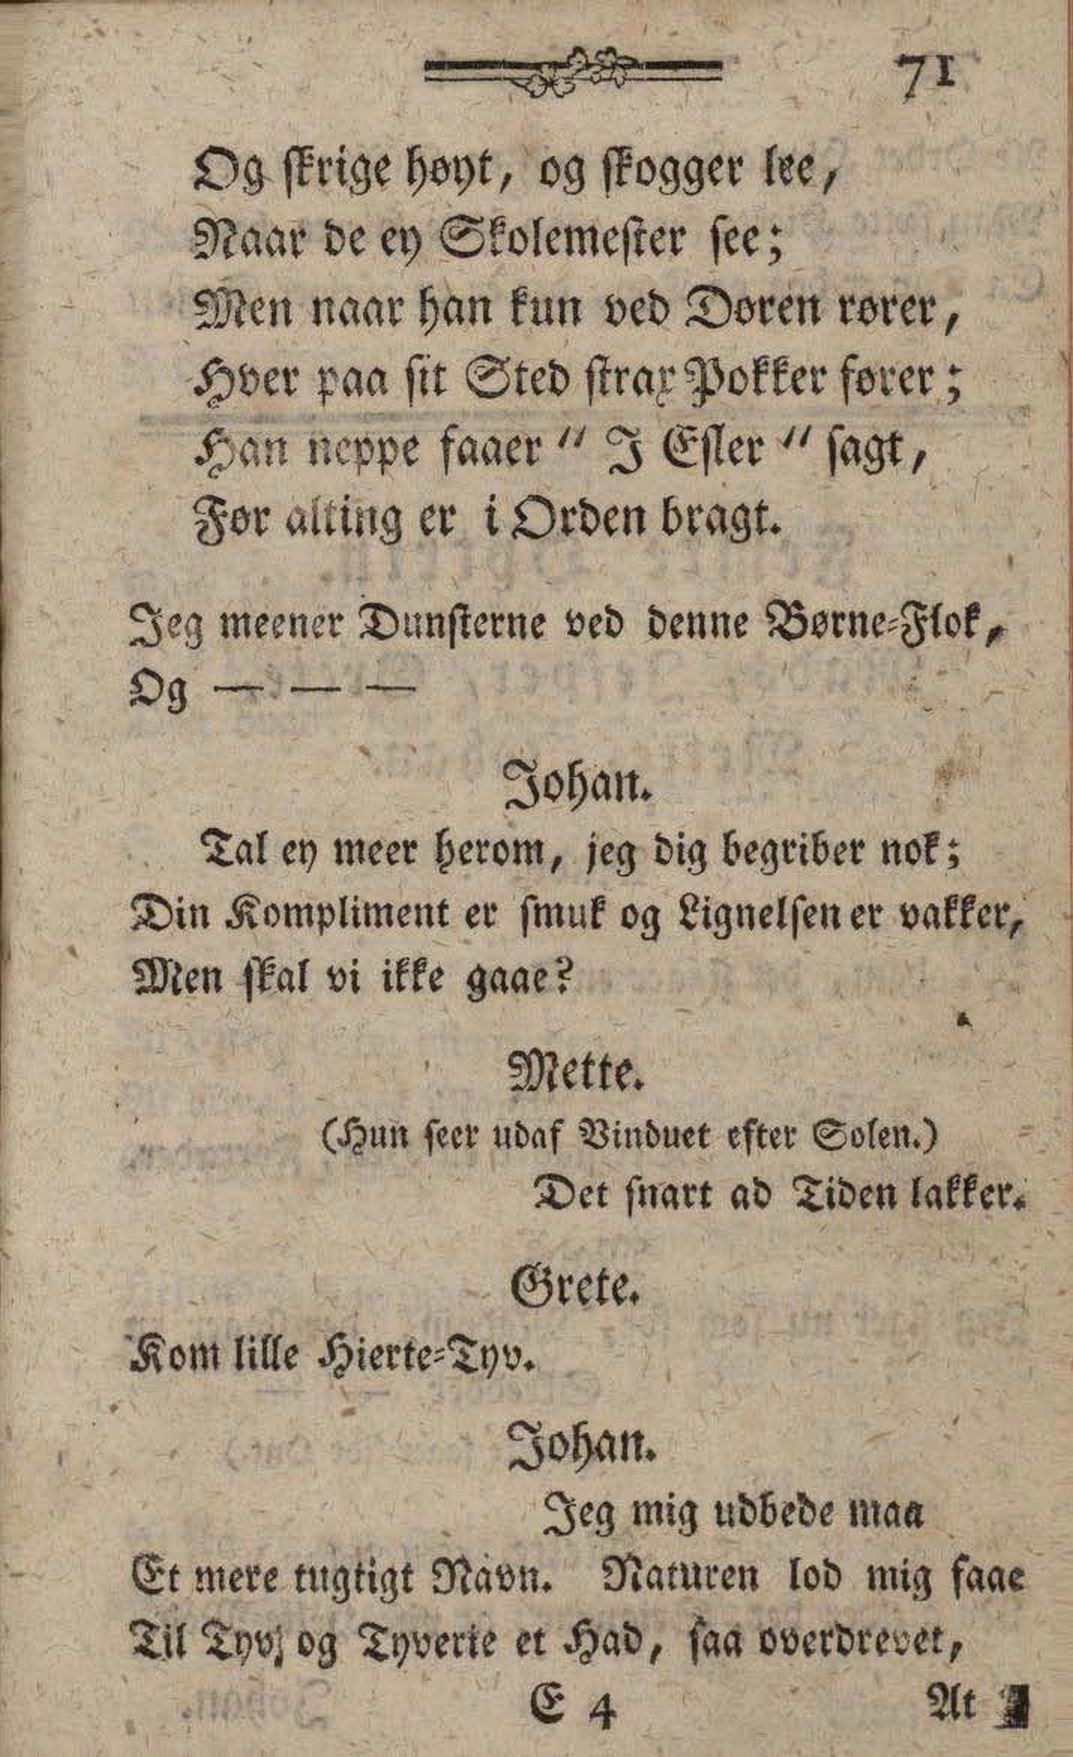 71
Og skrige høyt, og skogger lee,
Naar de ey Skolemester see;
Men naar han kun ved Døren rører,
Hver paa sit Sted strax Pokker fører;
Han neppe faaer " I Esler " sagt,
Før alting er i Orden bragt.
Jeg meener Dunsterne ved denne Børne-Flok,
Og — — —
Johan.
Tal ey meer herom, jeg dig begriber nok;
Din Kompliment er smuk og Lignelsen er vakker,
Men skal vi ikke gaae?
Mette.
(Hun seer udaf Vinduet efter Solen.)
Det snart ad Tiden lakker.
Grete.
Kom lille Hierte-Tyv.
Johan.
Jeg mig udbede maa
Et mere tugtigt Navn. Naturen lod mig faae
Til Tyv, og Tyverie et Had, saa overdrevet,
E 4
At